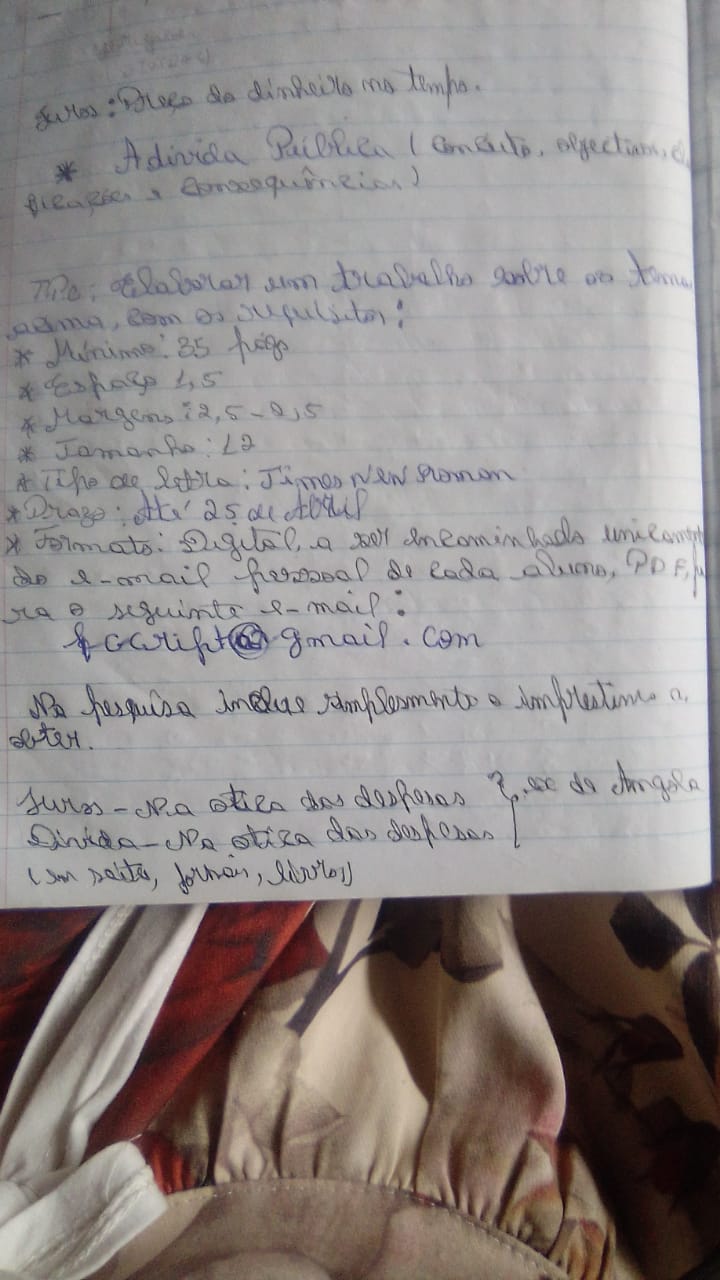 Juros: Preço do dinheiro no tempo.
* A divida Pública (conceito, objectivos,
ficações e consequências)
TPC: Elaborar um trabalho sobre os temas
acima, com os requisitos:
* Mínimo: 35 pág
* Espaço 1,5
* Margens: 2,5-2,5
* Tamanho: 12
* Tipo de letra: Times New Roman
* Prazo: Até 25 de Abril
* Formato: Digital, a ser encaminhado unicament
do e-mail pessoal de cada aluno, PDF, pa
ra o seguinte e-mail:
@gmail.com
Na pesquisa inclue simplesmente o
obter.
Juros - Na otica das despesas } de Angola
Divida - Na otica das despesas
(em saite, jornais, livros)